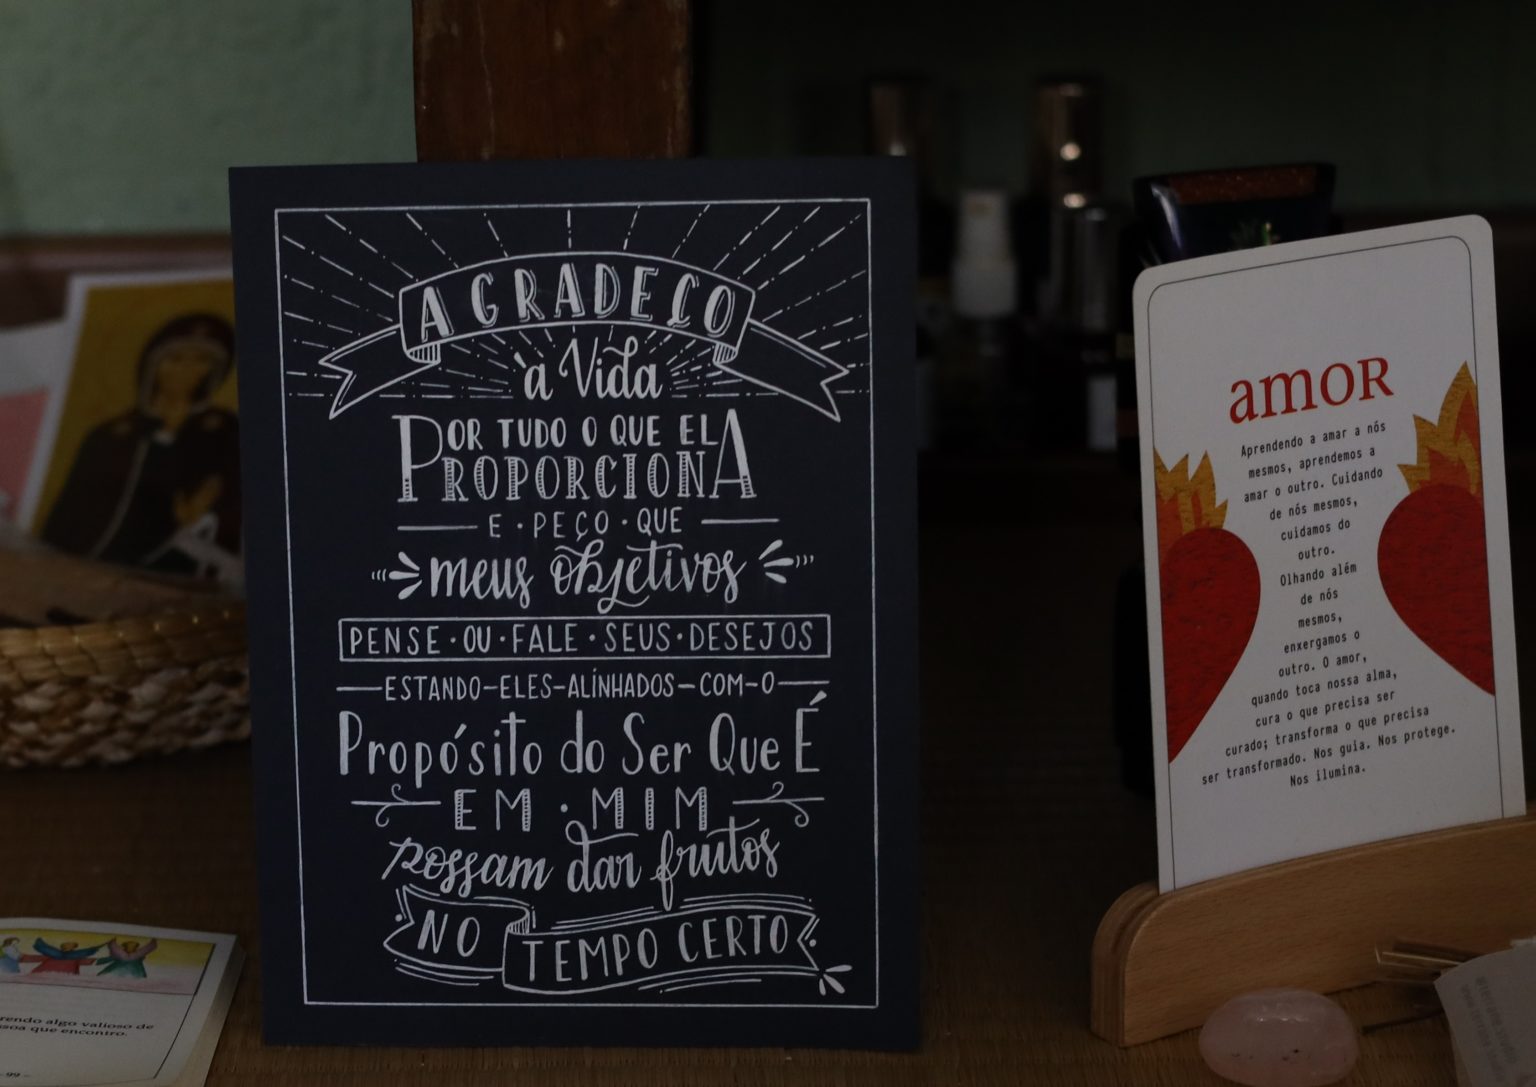 AGRADEÇO
à Vida
POR TUDO O QUE ELA
PROPORCIONA
E · PEÇO · QUE
meus objetivos
PENSE · OU · FALE · SEUS · DESEJOS
ESTANDO-ELES-ALINHADOS-COM-O
Propósito do Ser Que É
EM · MIM
possam dar frutos
NO TEMPO CERTO
amoR
Aprendendo a amar a nós
mesmos, aprendemos a
amar o outro. Cuidando
de nós mesmos,
cuidamos do
outro.
Olhando além
de nós
mesmos,
enxergamos o
outro. O amor,
quando toca nossa alma,
cura o que precisa ser
curado; transforma o que precisa
ser transformado. Nos guia. Nos protege.
Nos ilumina.
rendo algo valioso de
soa que encontro.
- 99 -